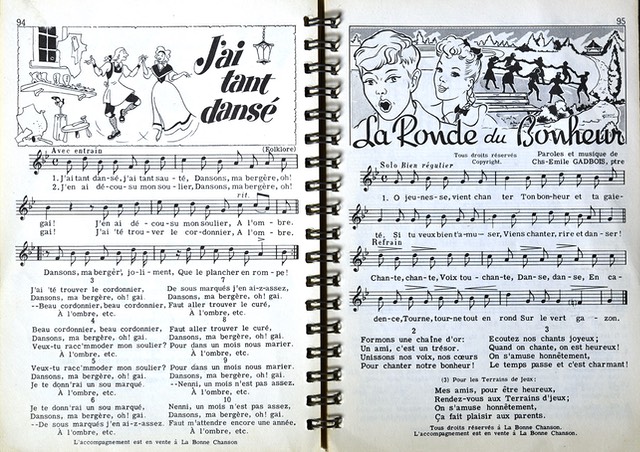 94
J'ai
tant
dansé
Avec entrain
(Folklore)
1. J'ai tant dan-sé, j'ai tant sau - té, Dansons, ma bergère, oh!
2. J'en ai dé-cou-su mon sou-lier, Dansons, ma bergère, oh!
rit.
gai! J'en ai dé - cou - su mon soulier, A l'om - bre.
gai! J'ai 'té trou-ver le cor-donnier, A l'om - bre.
Dansons, ma bergèr', jo-li-ment, Que le plancher en rom-pe!
3
J'ai 'té trouver le cordonnier,
Dansons, ma bergère, oh! gai.
--Beau cordonnier, beau cordonnier,
À l'ombre, etc.
4
Beau cordonnier, beau cordonnier,
Dansons, ma bergère, oh! gai.
Veux-tu racc'mmoder mon soulier?
À l'ombre, etc.
5
Veux-tu racc'mmoder mon soulier?
Dansons, ma bergère, oh! gai.
Je te donn'rai un sou marqué.
À l'ombre, etc.
6
Je te donn'rai un sou marqué,
Dansons, ma bergère, oh! gai.
--De sous marqués j'en ai-z-assez.
À l'ombre, etc.
7
De sous marqués j'en ai-z-assez,
Dansons, ma bergère, oh! gai.
Faut aller trouver le curé,
À l'ombre, etc.
8
Faut aller trouver le curé,
Dansons, ma bergère, oh! gai.
Pour dans un mois nous marier.
À l'ombre, etc.
9
Pour dans un mois nous marier.
Dansons, ma bergère, oh! gai.
--Nenni, un mois n'est pas assez,
À l'ombre, etc.
10
Nenni, un mois n'est pas assez,
Dansons, ma bergère, oh! gai.
Faut m'attendre encore une année.
À l'ombre, etc.
L'accompagnement est en vente à La Bonne Chanson.
95
La Ronde du Bonheur
Tous droits réservés
Copyright.
Paroles et musique de
Chs-Emile GADBOIS, ptre
Solo Bien régulier
1. O jeu-nes-se, vient chan ter Ton bon-heur et ta gaie-
té. Si tu veux bien t'a-mu-ser, Viens chanter, rire et danser!
Refrain
Chan-te, chan-te, Voix tou-chan-te, Dan-se, dan-se, En ca-
den-ce, Tourne, tour-ne tout en rond Sur le vert ga-zon.
2
Formons une chaîne d'or:
Un ami, c'est un trésor.
Unissons nos voix, nos cœurs
Pour chanter notre bonheur!
3
Ecoutez nos chants joyeux;
Quand on chante, on est heureux!
On s'amuse honnêtement,
Le temps passe et c'est charmant!
(3) Pour les Terrains de Jeux:
Mes amis, pour être heureux,
Rendez-vous aux Terrains d'jeux;
On s'amuse honnêtement,
Ça fait plaisir aux parents.
Tous droits réservés à La Bonne Chanson.
L'accompagnement est en vente à La Bonne Chanson.